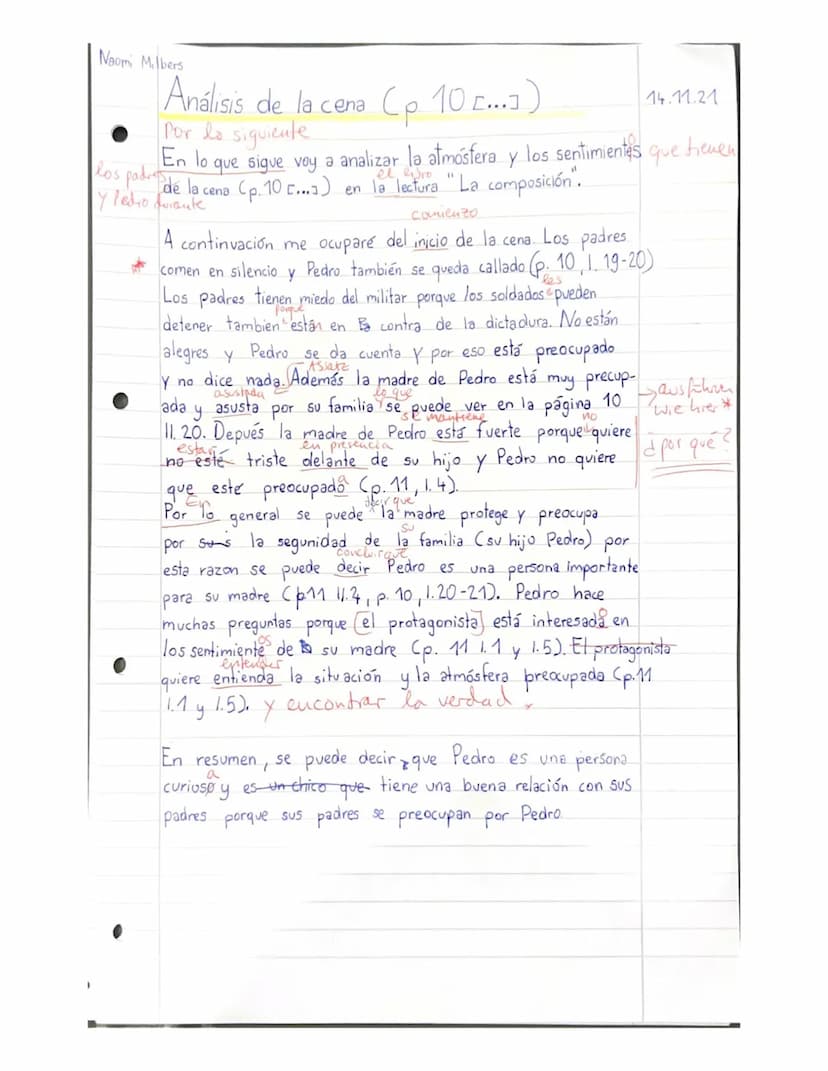 Naomi Milbers
Análisis de la cena (p 10 [...])
14.11.21
Por lo siguiente
En lo que sigue voy a analizar la atmósfera y los sentimientos que tienen
los padres
el libro
de la cena (p.10 [...]) en la lectura "La composición".
y Pedro durante
comienzo
A continuación me ocuparé del inicio de la cena. Los padres
* comen en silencio y Pedro también se queda callado (p. 10, l. 19-20)
les
Los padres tienen miedo del militar porque los soldados pueden
porque
detener tambien están en contra de la dictadura. No están
alegres y Pedro se da cuenta y por eso está preocupado
Absatz
y no dice nada. Además la madre de Pedro está muy precup-
→ ausführen
asustada lo que
wie hier *
ada y asusta por su familia se puede ver en la página 10
se mantiene no
ll. 20. Depués la madre de Pedro está fuerte porque quiere
¿por qué?
estar en presencia
no esté triste delante de su hijo y Pedro no quiere
a
que esté preocupado (p. 11, l. 4).
En decir que
Por lo general se puede la madre protege y preocupa
su
por sus la segunidad de la familia (su hijo Pedro) por
concluir que
esta razon se puede decir Pedro es una persona importante
para su madre (p11 ll.2, p. 10, l.20-21). Pedro hace
muchas preguntas porque [el protagonista] está interesado en
os
los sentimiente de su madre (p. 11 l.1 y l.5). El protagonista
entender
quiere entienda la situación y la atmósfera preocupada (p.11
l.1 y l.5). y encontrar la verdad.
En resumen, se puede decir, que Pedro es una persona
a
curioso y es un chico que tiene una buena relación con sus
padres porque sus padres se preocupan por Pedro